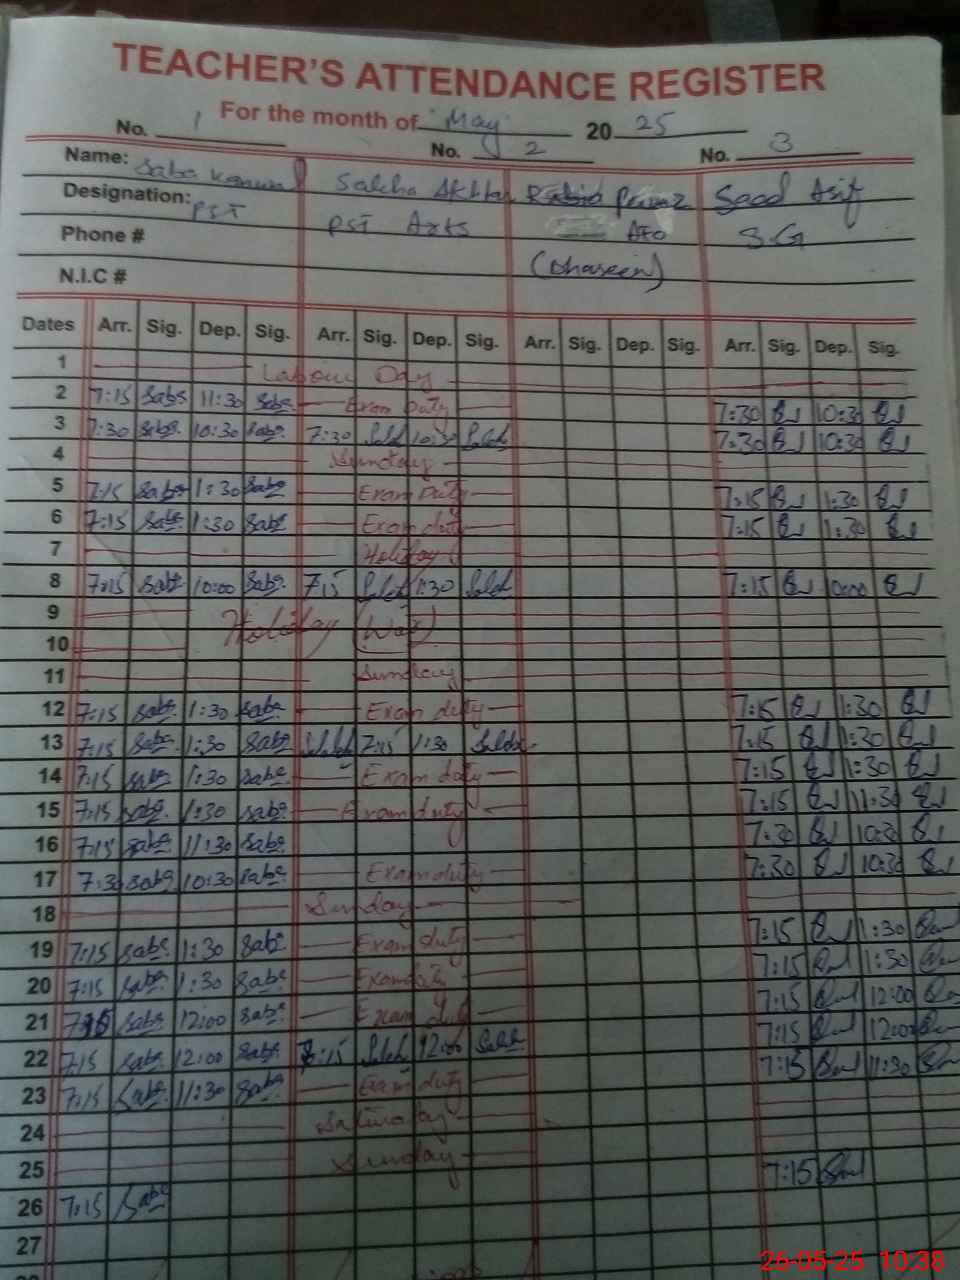 TEACHER'S ATTENDANCE REGISTER
For the month of May 2025
No. 1 No. 2 No. 3
Name: Saba Kanwal Saleha Akhtar Rabia Saad Asif
Designation: PST PST Arts S.G
Phone #
N.I.C #
Dates Arr. Sig. Dep. Sig. Arr. Sig. Dep. Sig. Arr. Sig. Dep. Sig. Arr. Sig. Dep. Sig.
1 Labour Day
2 7:15 Saba 11:30 Saba Exam Duty 7:30 10:30
3 7:30 Saba 10:30 Saba 7:30 Saleh 10:30 Saleh 7:30 10:30
4 Sunday
5 7:15 Saba 1:30 Saba Exam Duty 7:15 1:30
6 7:15 Saba 1:30 Saba Exam duty 7:15 1:30
7 Holiday
8 7:15 Saba 10:00 Saba 7:15 Saleh 1:30 Saleh 7:15 10:00
9 Holiday (War)
10
11 Sunday
12 7:15 Saba 1:30 Saba Exam duty 7:15 1:30
13 7:15 Saba 1:30 Saba Saleh 7:15 1:30 Saleha 7:15 1:30
14 7:15 Saba 1:30 Saba Exam duty 7:15 1:30
15 7:15 Saba 1:30 Saba Exam duty 7:15 11:30
16 7:15 Saba 11:30 Saba 7:30 10:30
17 7:30 Saba 10:30 Saba Exam duty 7:30 10:30
18 Sunday
19 7:15 Saba 1:30 Saba Exam duty 7:15 1:30
20 7:15 Saba 1:30 Saba Exam duty 7:15 1:30
21 7:15 Saba 12:00 Saba Exam duty 7:15 12:00
22 7:15 Saba 12:00 Saba 7:15 Saleh 12:00 Saleh 7:15 12:00
23 7:15 Saba 11:30 Saba Exam duty 7:15 11:30
24 Saturday
25 Sunday
26 7:15 Saba 7:15
27
26-05-25 10:38